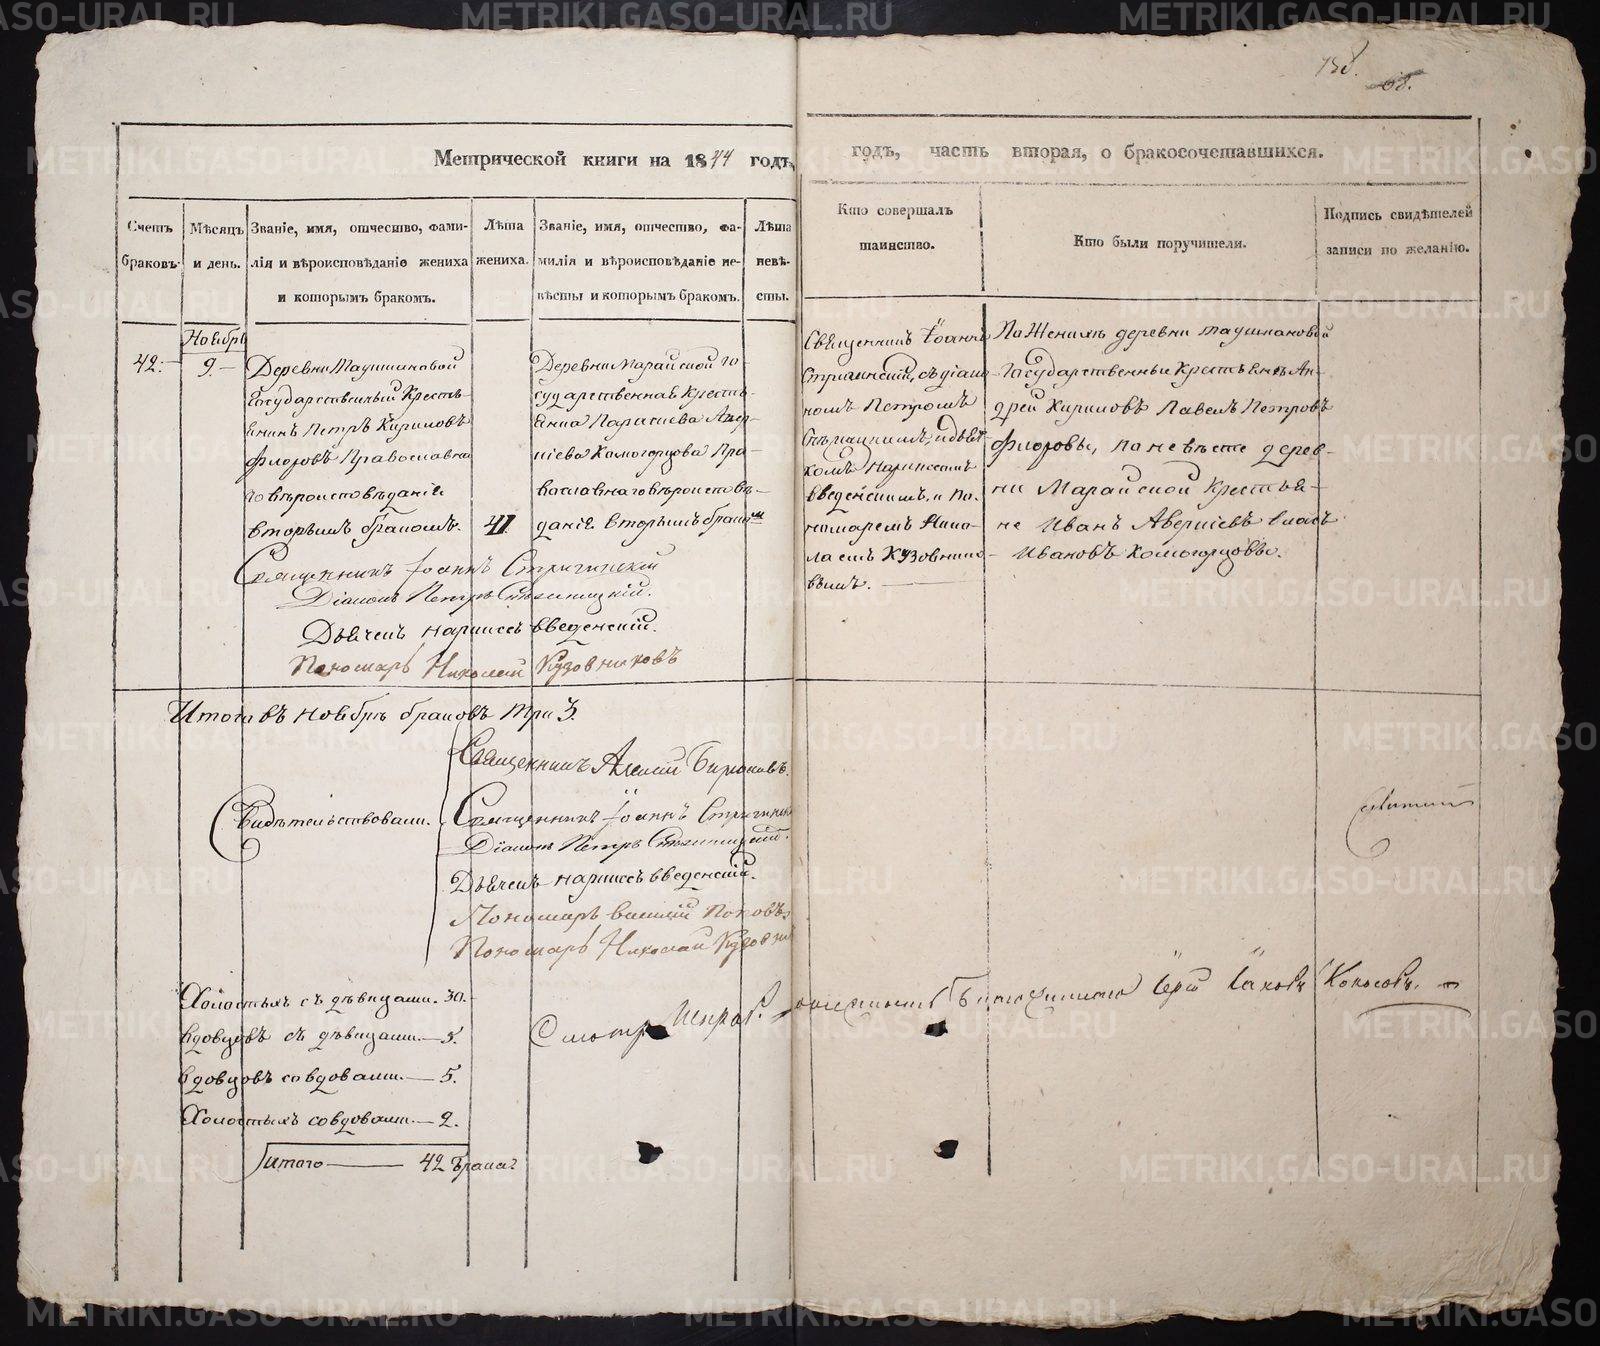 Метрической книги на 1844 годъ,
годъ, часть вторая, о бракосочетавшихся.
Счетъ браковъ.
Мѣсяцъ и день.
Званіе, имя, отчество, фами-
лія и вѣроисповѣданіе жениха
и которымъ бракомъ.
Лѣта
жениха.
Званіе, имя, отчество, фа-
милія и вѣроисповѣданіе не-
вѣсты и которымъ бракомъ.
Лѣта
невѣ-
сты.
Кто совершалъ
таинство.
Кто были поручители.
Подпись свидѣтелей
записи по желанію.
Ноябрь
42.
9.
Деревни
Государственный Кресть-
янинъ Петръ Кириловъ
Флоровъ Православна
го вѣроисповѣданія
вторымъ бракомъ.
41.
Деревни Марайской го-
сударственная Кресть-
янка
Комогорцова Пра-
вославнаго вѣроисповѣ-
данія вторымъ бракомъ
Священникъ Іоаннъ
съ діако-
номъ Петромъ
комъ Наркисомъ
Введенскимъ, и По-
номаремъ Нико-
лаемъ Кузовнико-
вымъ.
По Женихѣ деревни
Государственные Крестьяне Ан-
дрей Кириловъ Павелъ Петровъ
Флоровы, по невѣсте дерев-
ни Марайской Крестья-
не Иванъ
Ивановъ Комогорцовы.
Священникъ Іоаннъ Стригинскій
Діаконъ Петръ
Дьячекъ Наркисъ Введенскій.
Пономарь Николай Кузовниковъ
Итого въ Ноябрѣ браковъ три 3.
Свидѣтельствовали.
Священникъ Алексій
Священникъ Іоаннъ
Діаконъ Петръ
Дьячекъ Наркисъ Введенскій.
Пономарь Василій Поповъ
Пономарь Николай
Холостыхъ съ дѣвицами. 30.
Вдовцовъ съ дѣвицами. — 5.
Вдовцовъ со вдовами. — 5.
Холостыхъ со вдовами. — 2.
Итого — 42 брака
Іерей Іаковъ
METRIKI.GASO-URAL.RU